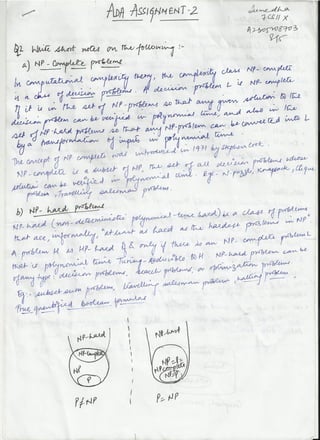 ADA ASSIGNMENT-2
7CS11X
Q1 Write short notes on the following :-
a) NP-Complete problems
In computational complexity theory, the complexity class NP-complete
is a class of decision problems. A decision problem L is NP-complete
if it is in the set of NP-problems so that any given solution to the
decision problem can be verified in polynomial time, and also in the
set of NP-hard problems so that any NP-problem can be converted into L
by a transformation of inputs in polynomial time
The concept of NP complete was introduced in 1971 by Stephen Cook
NP-complete is a subset of NP, the set of all decision problems whose
solution can be verified in polynomial time. Eg.- N puzzle, Knapsack, Clique
problem, Travelling salesman problem.
b) NP-hard problems
NP-hard (non-deterministic polynomial-time hard) is a class of problems
that are, informally, "atleast as hard as the hardest problems in NP"
A problem H is NP-hard if & only if there is an NP-complete problem L
that is polynomial time Turing-reducible to H. NP-hard problem can be
of any type: decision problems, search problems, or optimization problems.
Eg:- subset sum problem, travelling salesman problem, halting problem,
True quantified boolean formulas
NP-hard
NP-Complete
NP
P
P≠NP
NP-hard
NP=P=
NPcomplete
P=NP